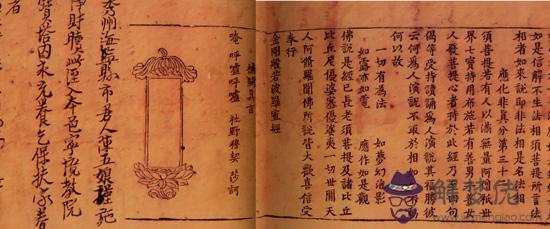 如是信解不生法相須菩提所言法
相者如來說即非法相是名法相
應化非真分第三十二
須菩提若有人以滿無量阿僧祇世
界七寶持用布施若有善男子善女
人發菩提心者持於此經乃至四句
偈等受持讀誦為人演說其福勝彼
云何為人演說不取於相如如不動
何以故
一切有為法 如夢幻泡影
如露亦如電 應作如是觀
佛說是經已長老須菩提及諸比丘
比丘尼優婆塞優婆夷一切世間天
人阿脩羅聞佛所說皆大歡喜信受
奉行
金剛般若波羅蜜經
補闕真言
唵 呼嚧呼嚧 社曳穆契 莎訶
秀州海鹽縣市人陳五娘謹施
淨財贖此入本邑寧境教院
寶塔內永充養乞保扶家眷
者
解梦佬